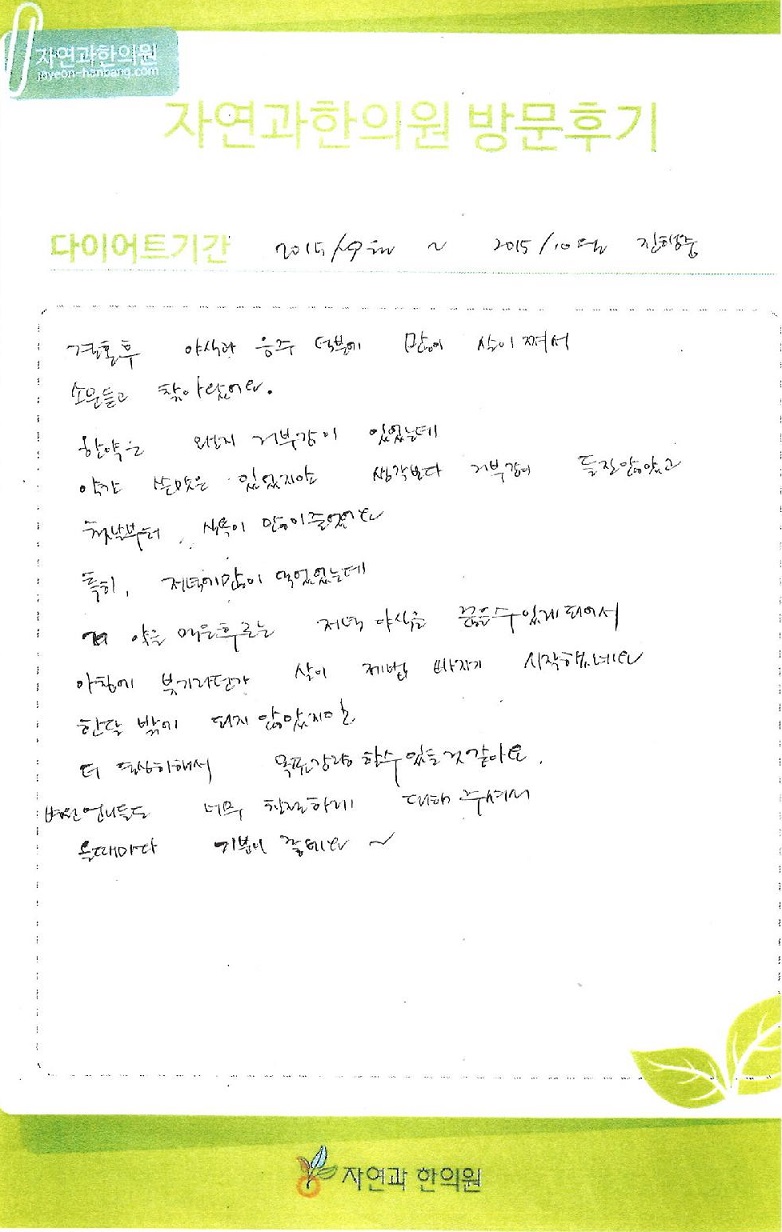 자연과한의원
jayeon-hanbang.com
자연과한의원 방문후기
다이어트기간 2015/9월 ~ 2015/10월 진행중
결혼후 야식과 음주 덕분에 많이 살이 쪄서
소문듣고 찾아왔어요.
한약은 왠지 거부감이 있었는데
약간 쓴맛은 있었지만 생각보다 거부감이 들진않았고
첫날부터 식욕이 많이줄었어요
특히, 저녁에많이 먹었었는데
약을 먹은후로는 저녁 야식을 끊을수있게되어서
아침에 붓기라던가 살이 제법 빠지기 시작했네요
한달 밖에 되지 않았지만
더 열심히해서 목표감량 할수있을것같아요.
병원언니들도 너무 친절하게 대해 주셔서
올때마다 기분이 좋네요 ~
자연과 한의원